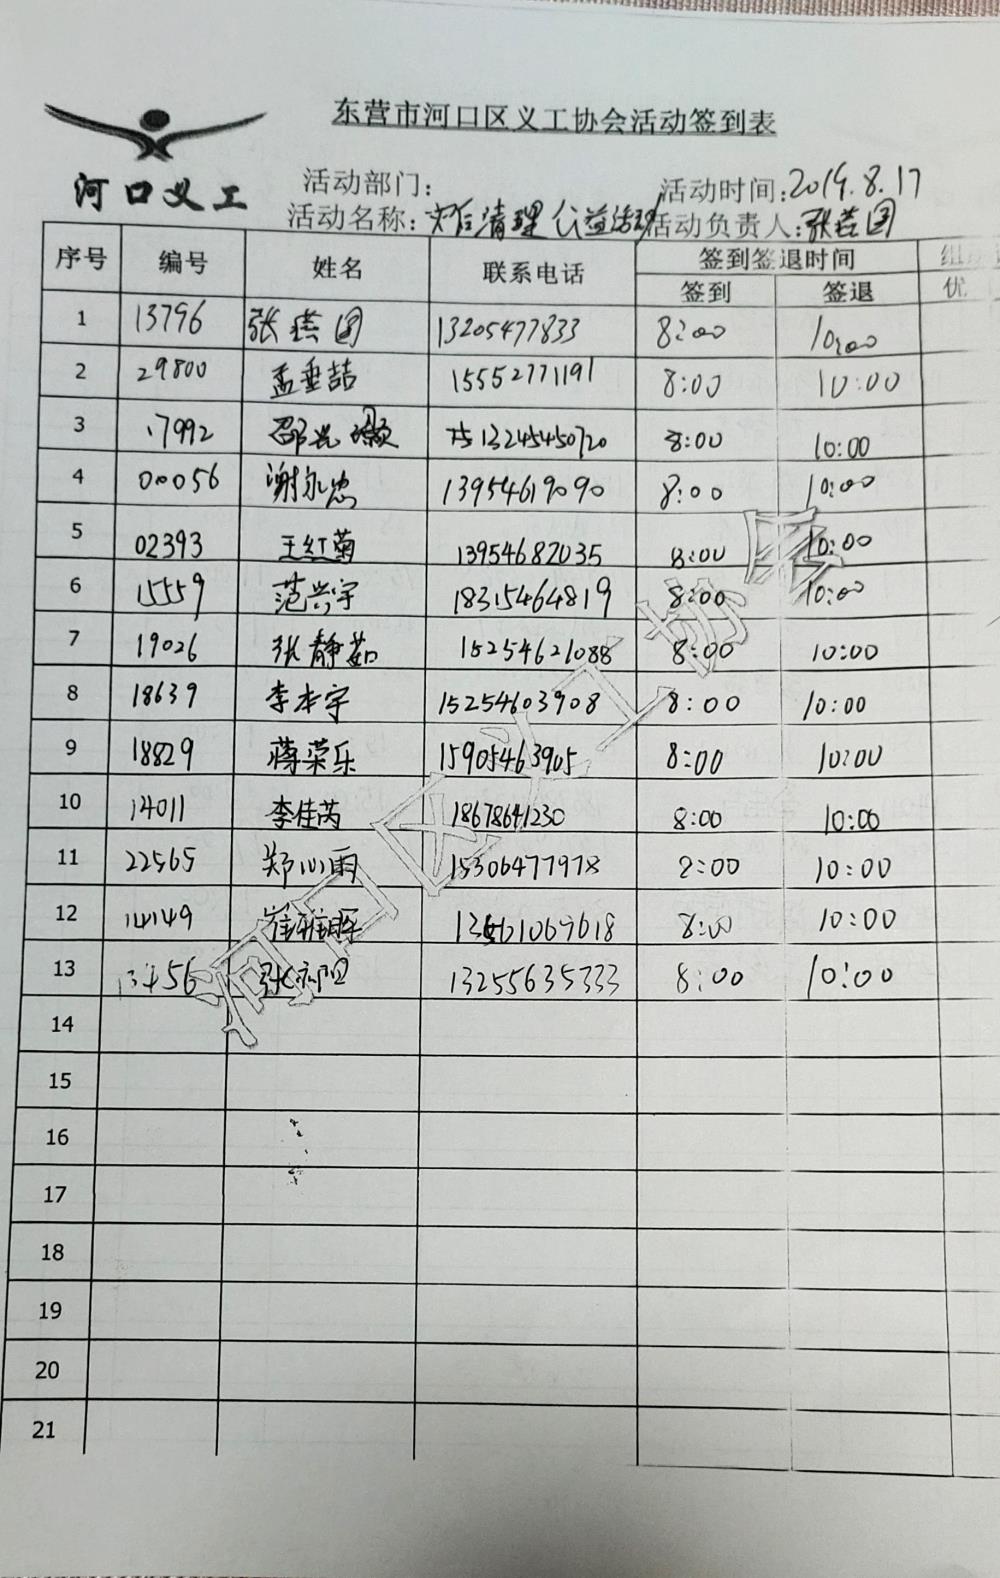 东营市河口区义工协会活动签到表
河口义工
活动部门: 活动时间:2019.8.17
活动名称: 清理公益活动 活动负责人:
序号 编号 姓名 联系电话 签到签退时间
签到 签退 优
1 13796 张 13205477833 8:00 10:00
2 29800 孟垂喆 15552771191 8:00 10:00
3 17992 邵 13245450720 8:00 10:00
4 00056 谢永忠 13954619090 8:00 10:00
5 02393 王红菊 13954682035 8:00 10:00
6 15559 范兴宇 18315464819 8:00 10:00
7 19026 张静茹 15254621088 8:00 10:00
8 18639 李本宇 15254603908 8:00 10:00
9 18829 蒋荣乐 15905463905 8:00 10:00
10 14011 李佳芮 18678641230 8:00 10:00
11 22565 郑心雨 15306477978 8:00 10:00
12 14149 崔 8:00 10:00
13 13456 张 13255635333 8:00 10:00
14
15
16
17
18
19
20
21
河口区义工协会